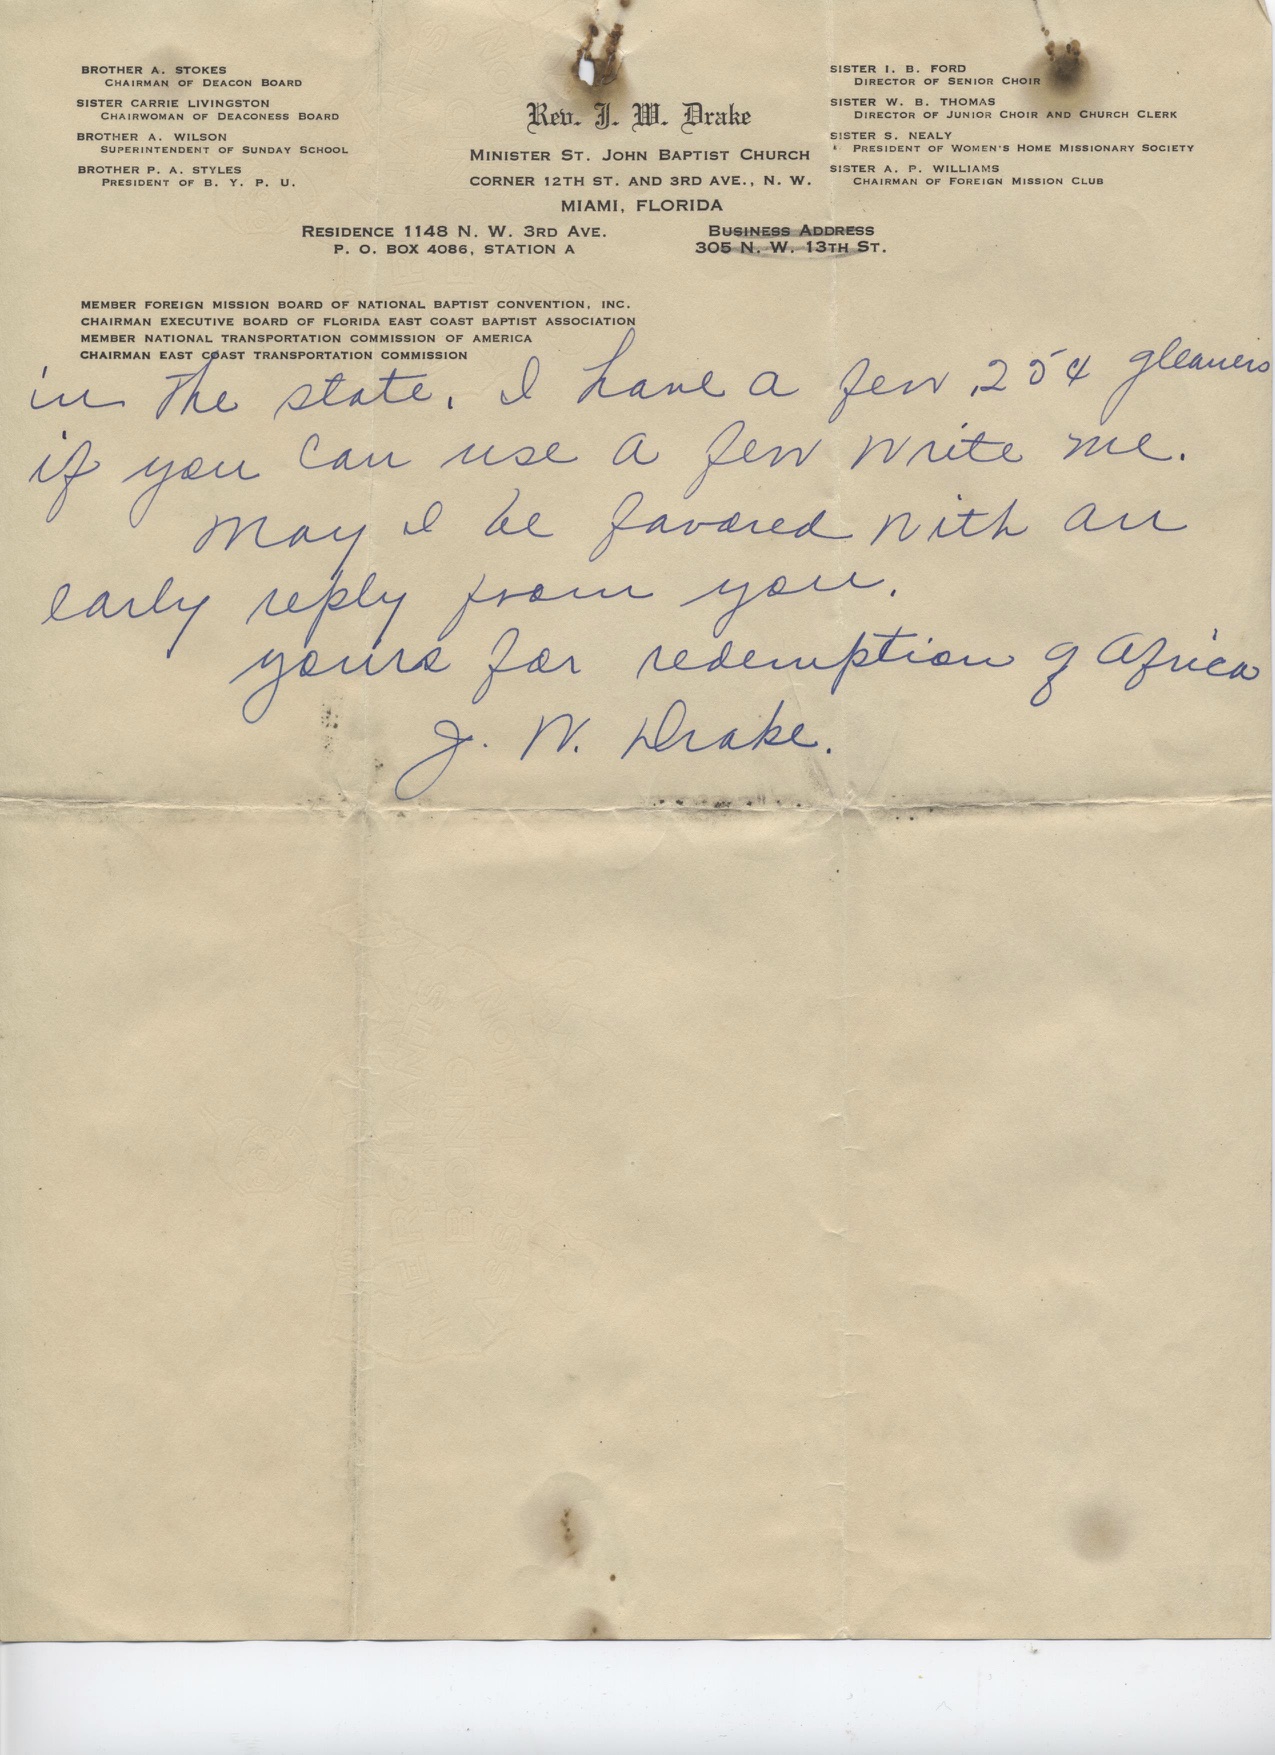 BROTHER A. STOKES
CHAIRMAN OF DEACON BOARD
SISTER CARRIE LIVINGSTON
CHAIRWOMAN OF DEACONESS BOARD
BROTHER A. WILSON
SUPERINTENDENT OF SUNDAY SCHOOL
BROTHER P. A. STYLES
PRESIDENT OF B. Y. P. U.
Rev. J. W. Drake
MINISTER ST. JOHN BAPTIST CHURCH
CORNER 12TH ST. AND 3RD AVE., N. W.
MIAMI, FLORIDA
SISTER I. B. FORD
DIRECTOR OF SENIOR CHOIR
SISTER W. B. THOMAS
DIRECTOR OF JUNIOR CHOIR AND CHURCH CLERK
SISTER S. NEALY
PRESIDENT OF WOMEN'S HOME MISSIONARY SOCIETY
SISTER A. P. WILLIAMS
CHAIRMAN OF FOREIGN MISSION CLUB
RESIDENCE 1148 N. W. 3RD AVE.
P. O. BOX 4086, STATION A
BUSINESS ADDRESS
305 N. W. 13TH ST.
MEMBER FOREIGN MISSION BOARD OF NATIONAL BAPTIST CONVENTION, INC.
CHAIRMAN EXECUTIVE BOARD OF FLORIDA EAST COAST BAPTIST ASSOCIATION
MEMBER NATIONAL TRANSPORTATION COMMISSION OF AMERICA
CHAIRMAN EAST COAST TRANSPORTATION COMMISSION
in the state. I have a few .25¢ gleaners
if you can use a few write me.
May I be favored with an
early reply from you.
yours for redemption of Africa
J. W. Drake.